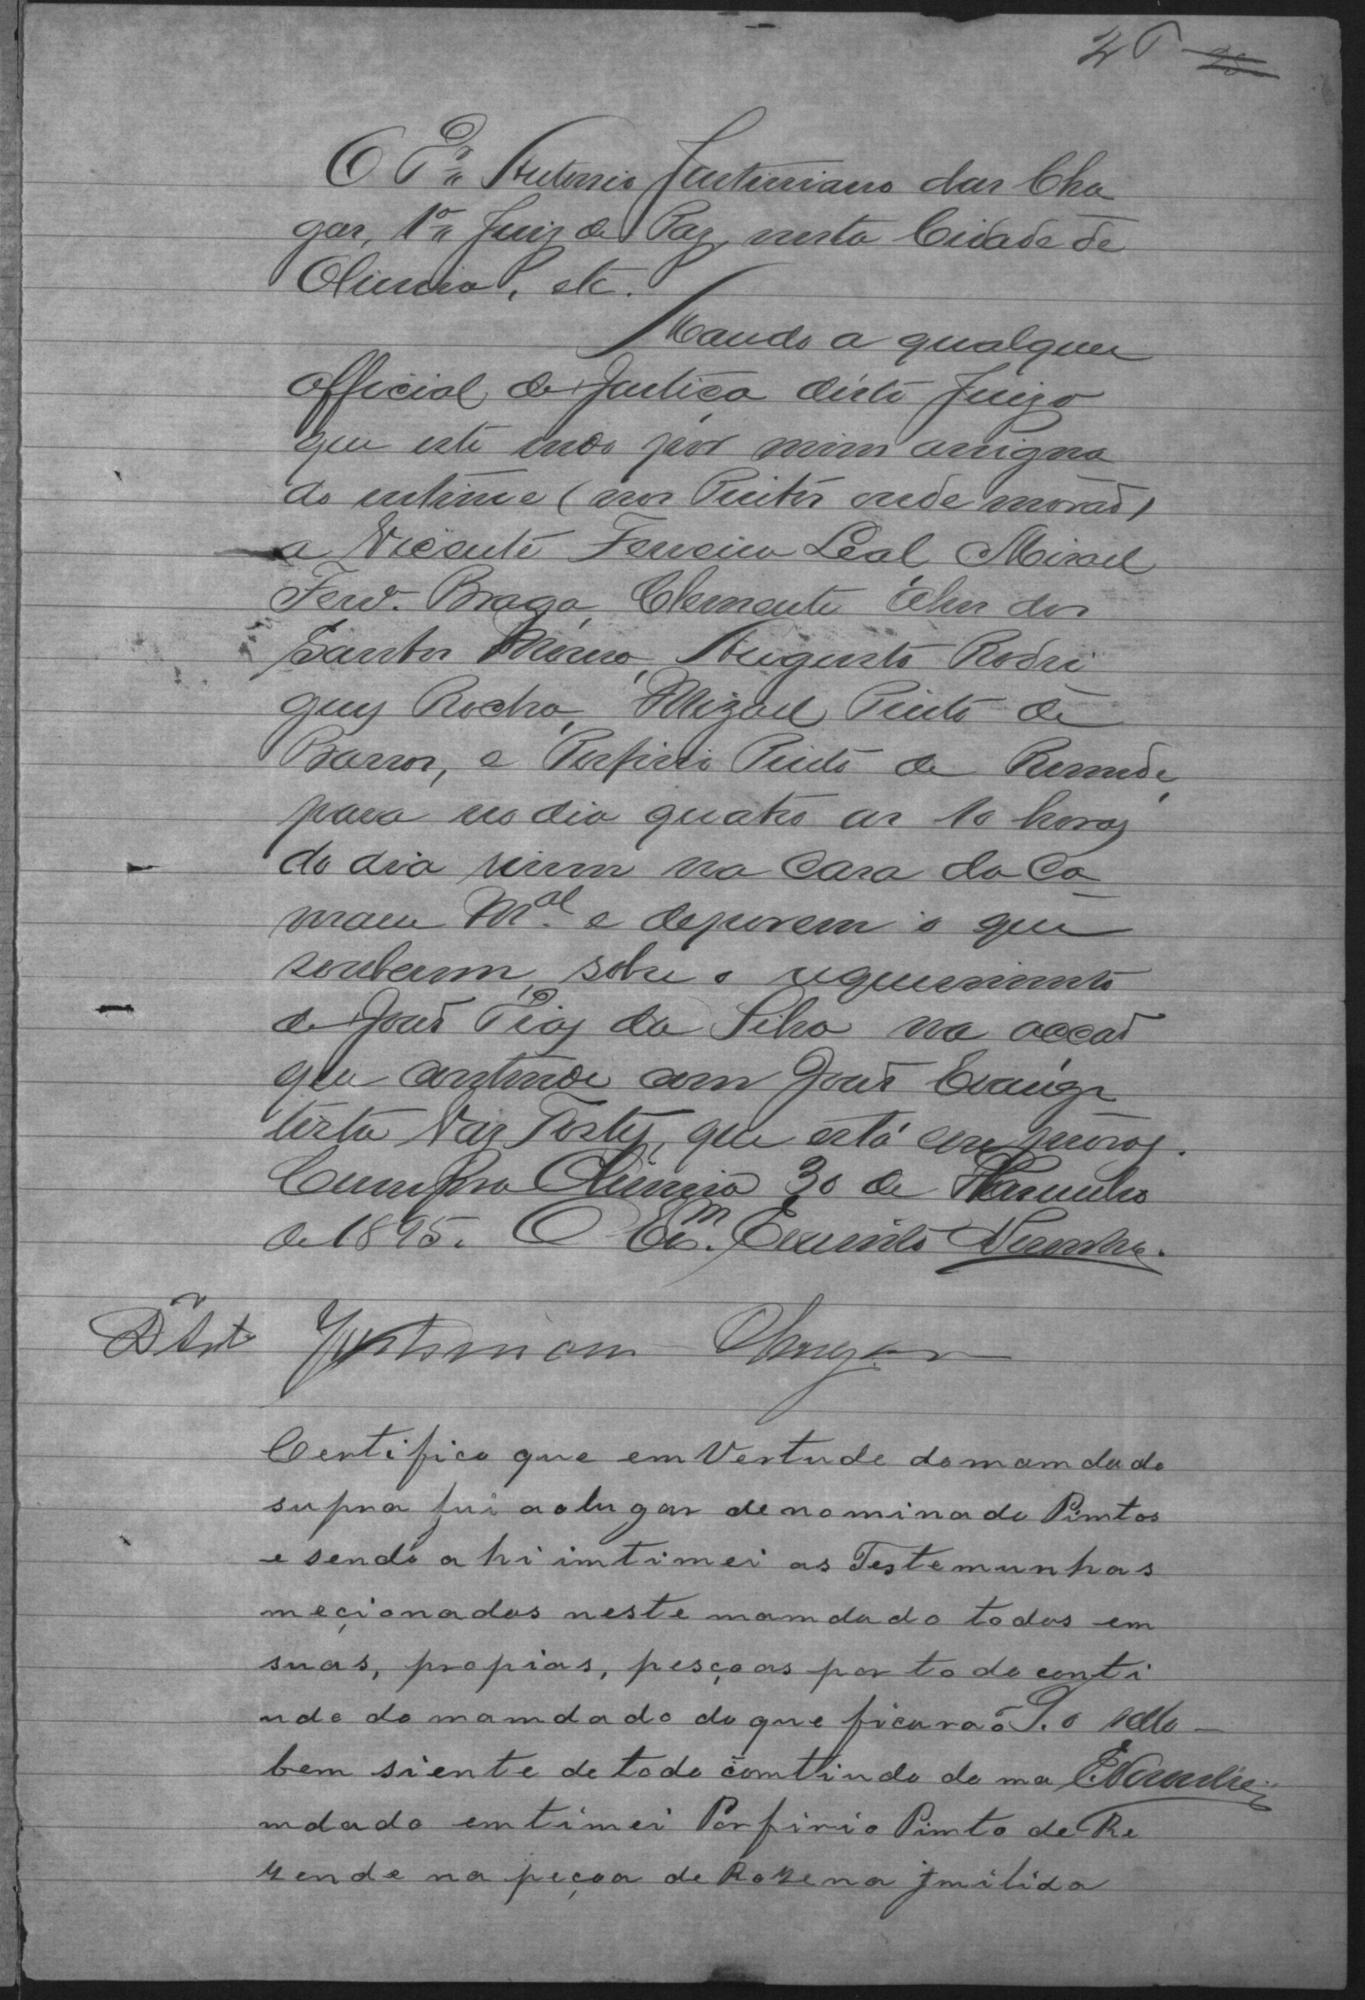 O Dr. Antonio Justiniano das Cha
gas, 1º Juiz de Paz, nesta Cidade de
Oliveira, etc.
Mando a qualquer
official de Justiça deste Juizo
que este indo por mim assigna
do intime (nos Pintos onde morão)
a Vicente Ferreira Leal, Misael
Ferrª. Braga, Clemente dos
Santos Augusto Rodri
gues Rocha, Mizael Pinto de
Barros, e Porfirio Pinto de Resende,
para no dia quatro as 10 horas
do dia virem na casa da Ca
mara Mal. e deporem o que
souberem, sobre o requerimento
de João Dias da Silva na accão
que contende com João Evange
lista Vaz Tostes, que está em provas.
Cumpra Oliveira 30 de
de 1895. O Ecm.
Anto Justiniano Chagas
Certifico que em Vertude do mamdado
supra fui ao lugar denominado Pimtos
e sendo ahi imtimei as Testemunhas
meçionadas neste mamdado todas em
suas, propias, pesçoas por todo conti
udo do mamdado do que ficaraõ P. o sello
bem siente de todo comtiudo do ma
mdado emtimei Porfirio Pimto de Re
zende na peçoa de Rozena Imilida